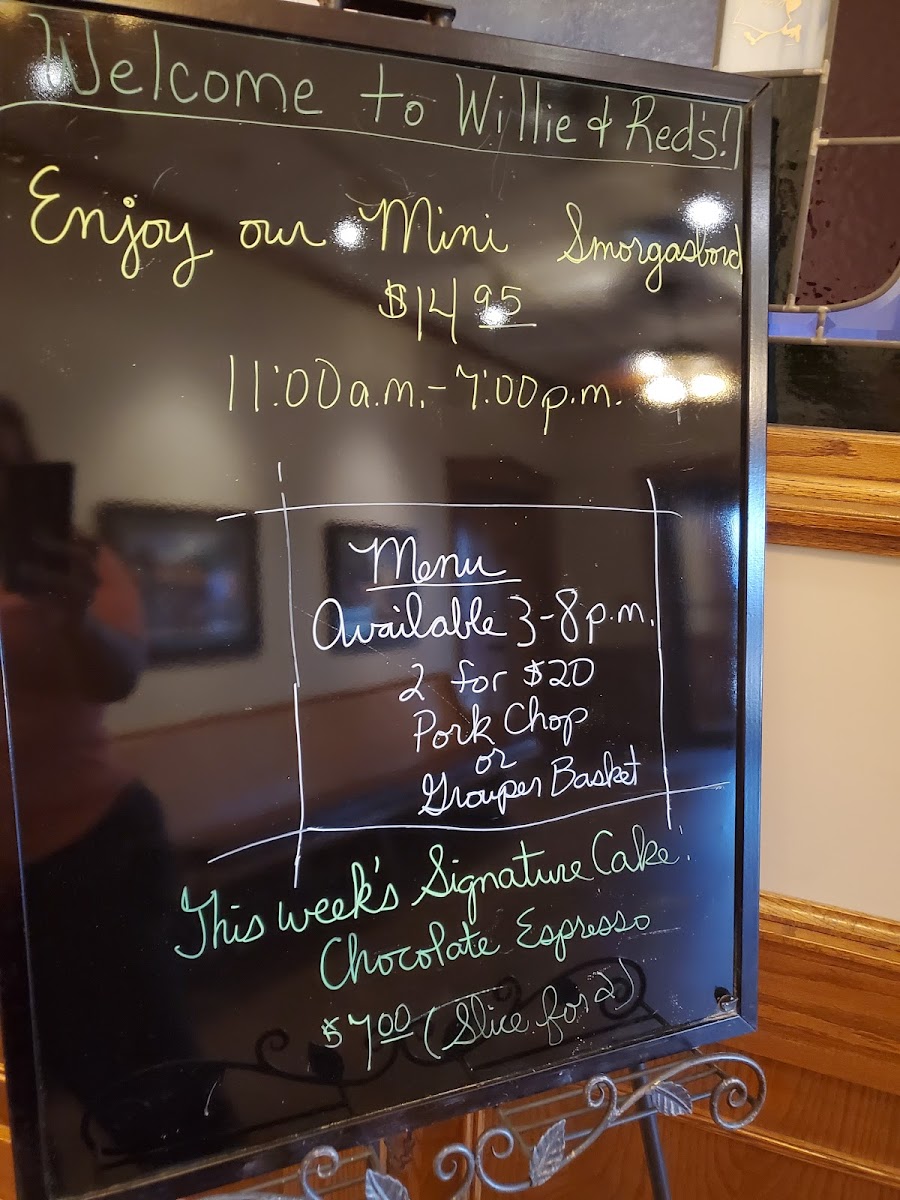 Welcome to Willie & Red's!
Enjoy our Mini Smorgasbord
$14 95
11:00 a.m. - 7:00 p.m.
Menu
Available 3-8 p.m.
2 for $20
Pork Chop
or
Grouper Basket
This week's Signature Cake:
Chocolate Espresso
$7 00 (Slice for 2)